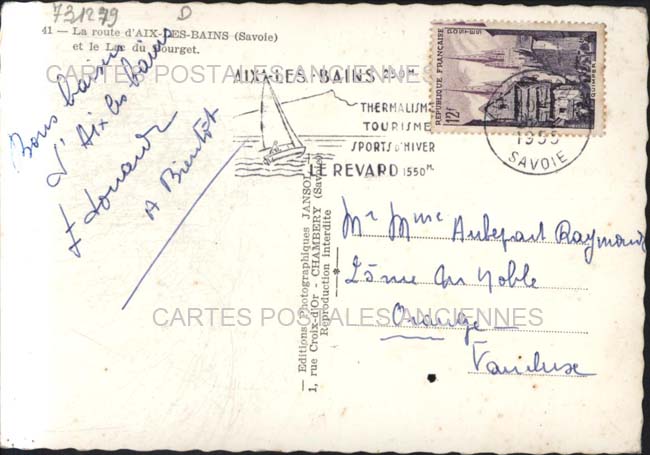 731279 D
41 — La route d'AIX-LES-BAINS (Savoie)
et le Lac du Bourget.
CARTES POSTALES ANCIENNES
Bons baisers
d'Aix les bains
A Bientôt
AIX-LES-BAINS 260M.
THERMALISME
TOURISME
SPORTS D'HIVER
LE REVARD 1550M.
REPUBLIQUE FRANÇAISE
POSTES
QUIMPER
12F
SAVOIE
— Editions Photographiques JANSOL
1, rue Croix-d'Or - CHAMBERY (Savoie)
Reproduction interdite
Mr Mme Raymond
Noble
Orange
Vaucluse
CARTES POSTALES ANCIENNES